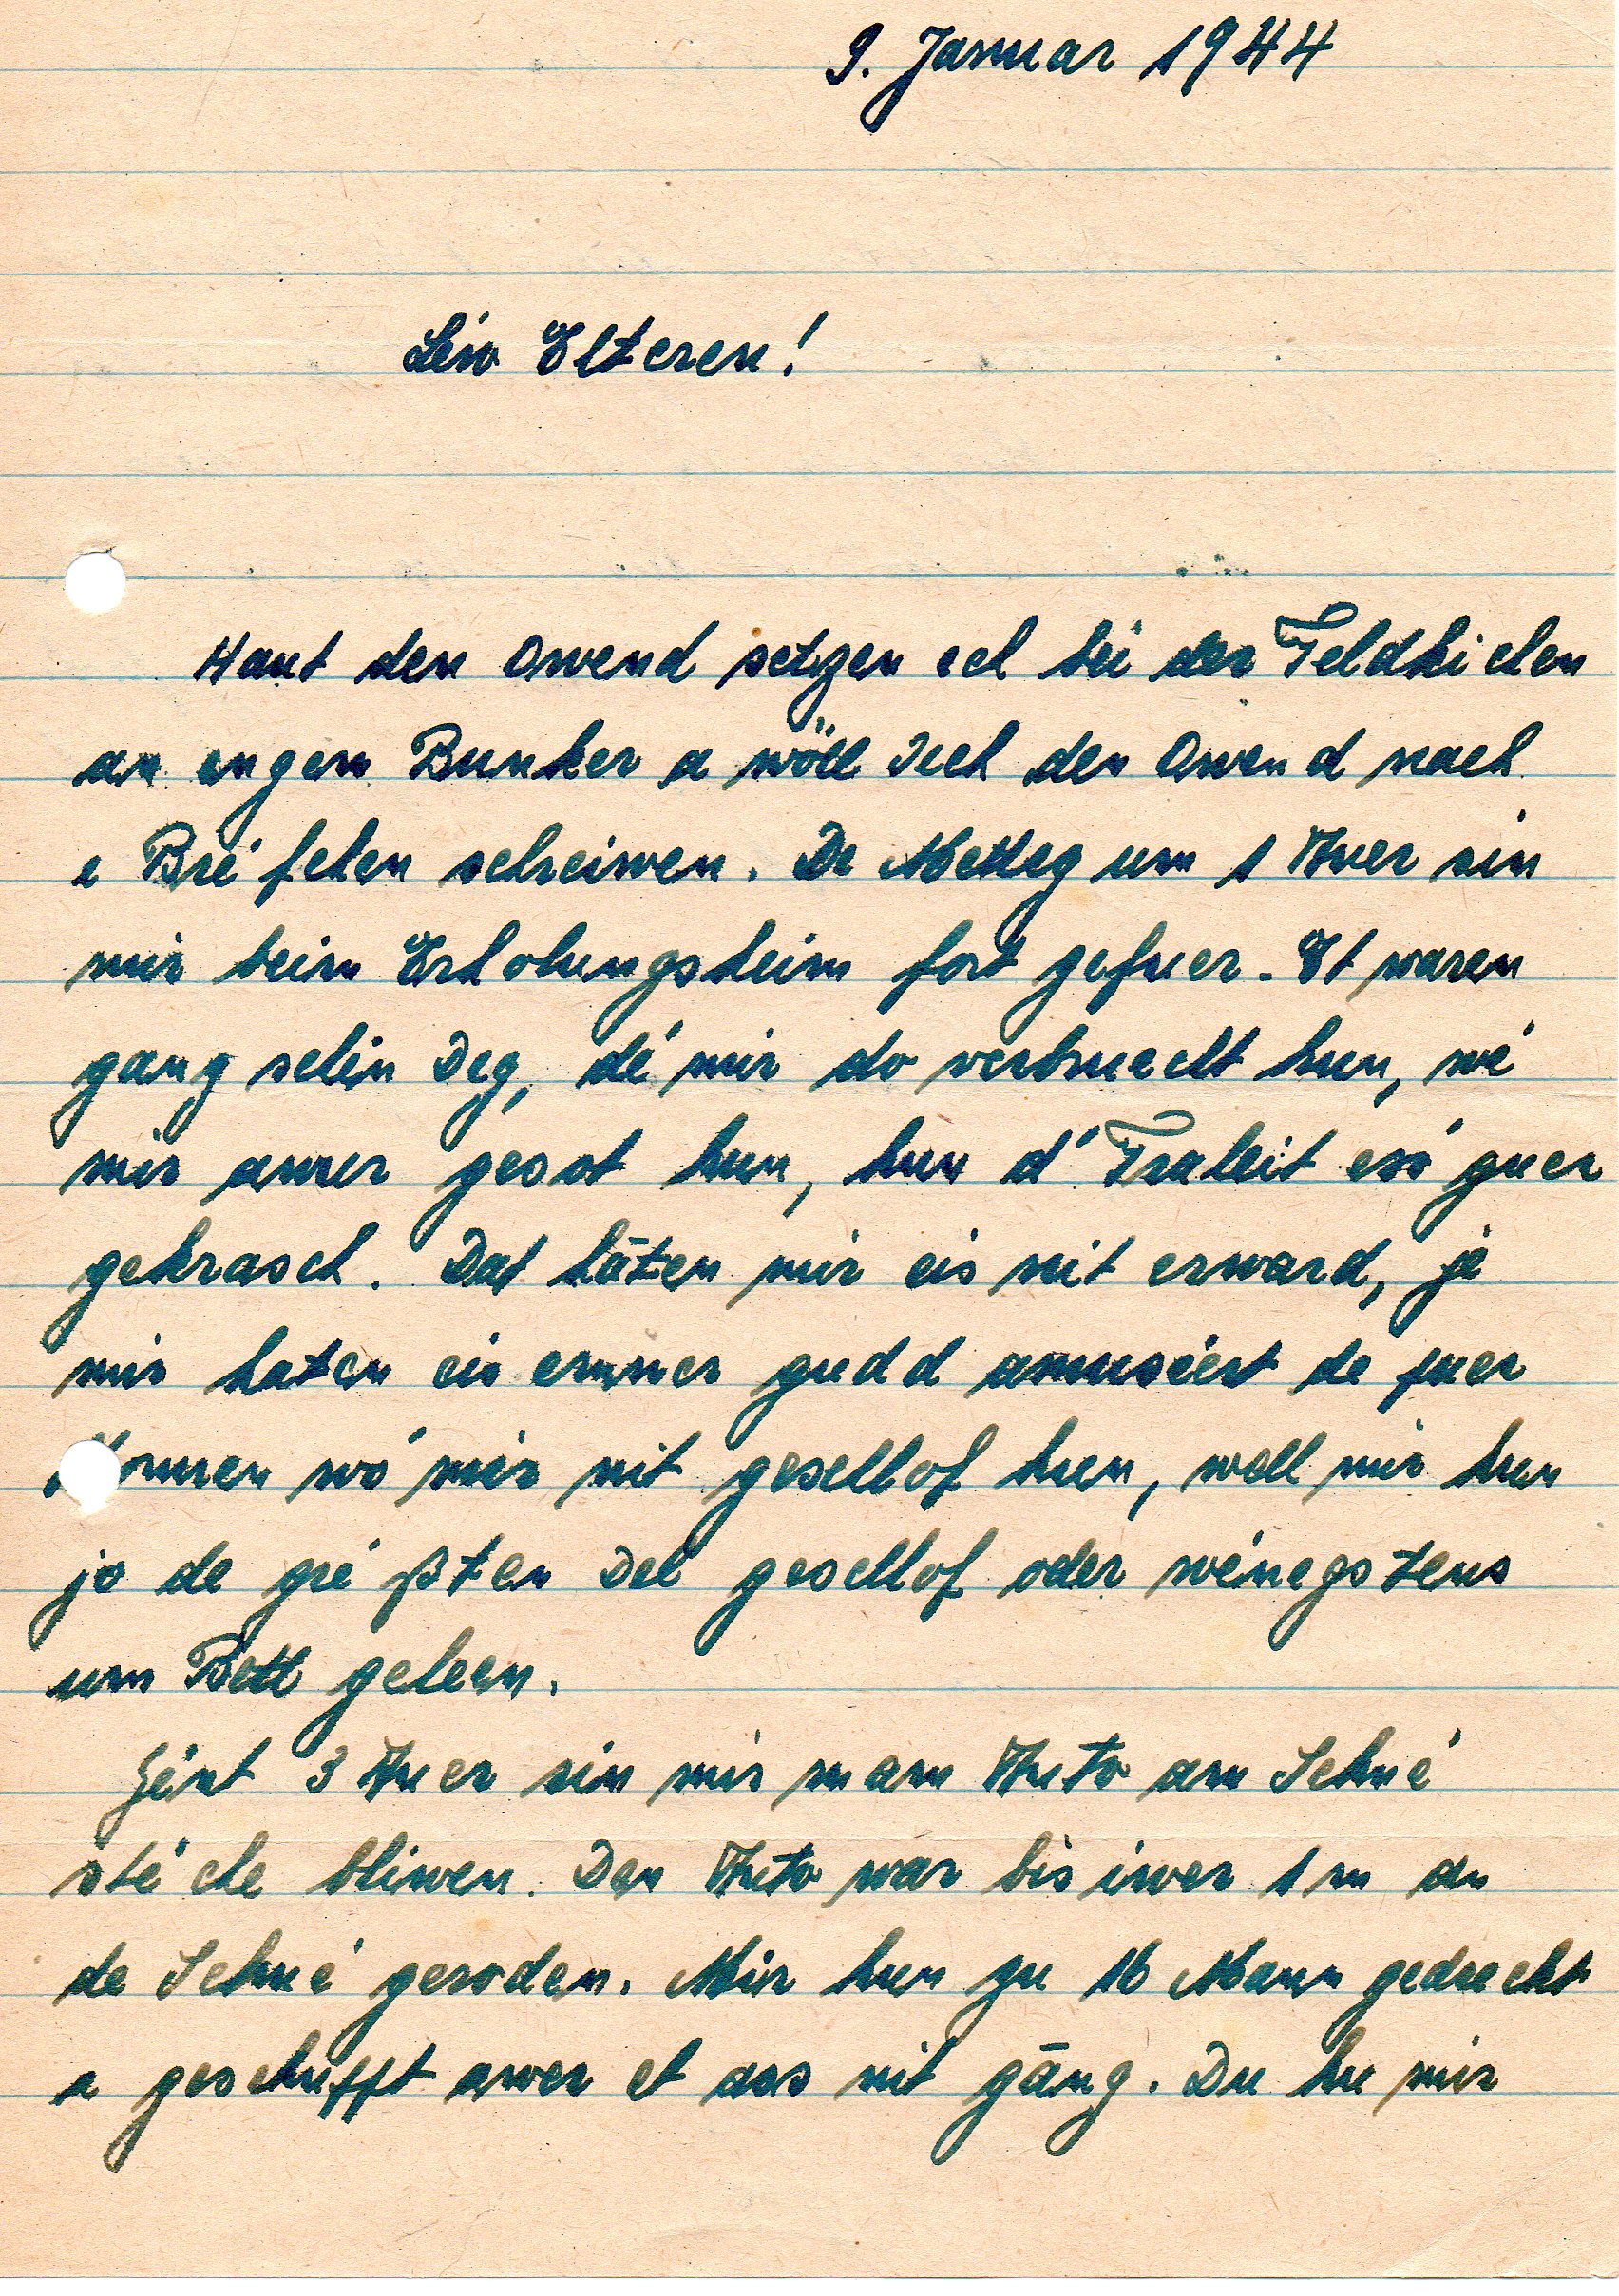 9. Januar 1944
Léiw Elteren!
Haut den Owend setzen ech bei der Feldkichen
an engem Bunker a wöll Iech den Owend nach
e Bréifchen schreiwen. De Metteg um 1 Auer sin
mir beim Erholungsheim fort gefuer. Et waren
ganz schéin Deg, dé mir do verbruecht hun, wé
mir awer gesot hun, hun d'Fraleit esó guer
gekrasch. Dat häten mir eis nit erward, jé
mir haten eis emmer gudd amuséiert de puer
Stonnen wó mir nit geschlof hun, well mir hun
jo de gréißten Del geschlof oder wéinegstens
um Bett geleen.
Géint 3 Auer sin mir mam Auto am Schné
stéche bliwen. Den Auto war bis iwer 1 m an
de Schné geroden. Mir hun zu 16 Mann gedreckt
a geschufft awer et ass nit gäng. Du hu mir